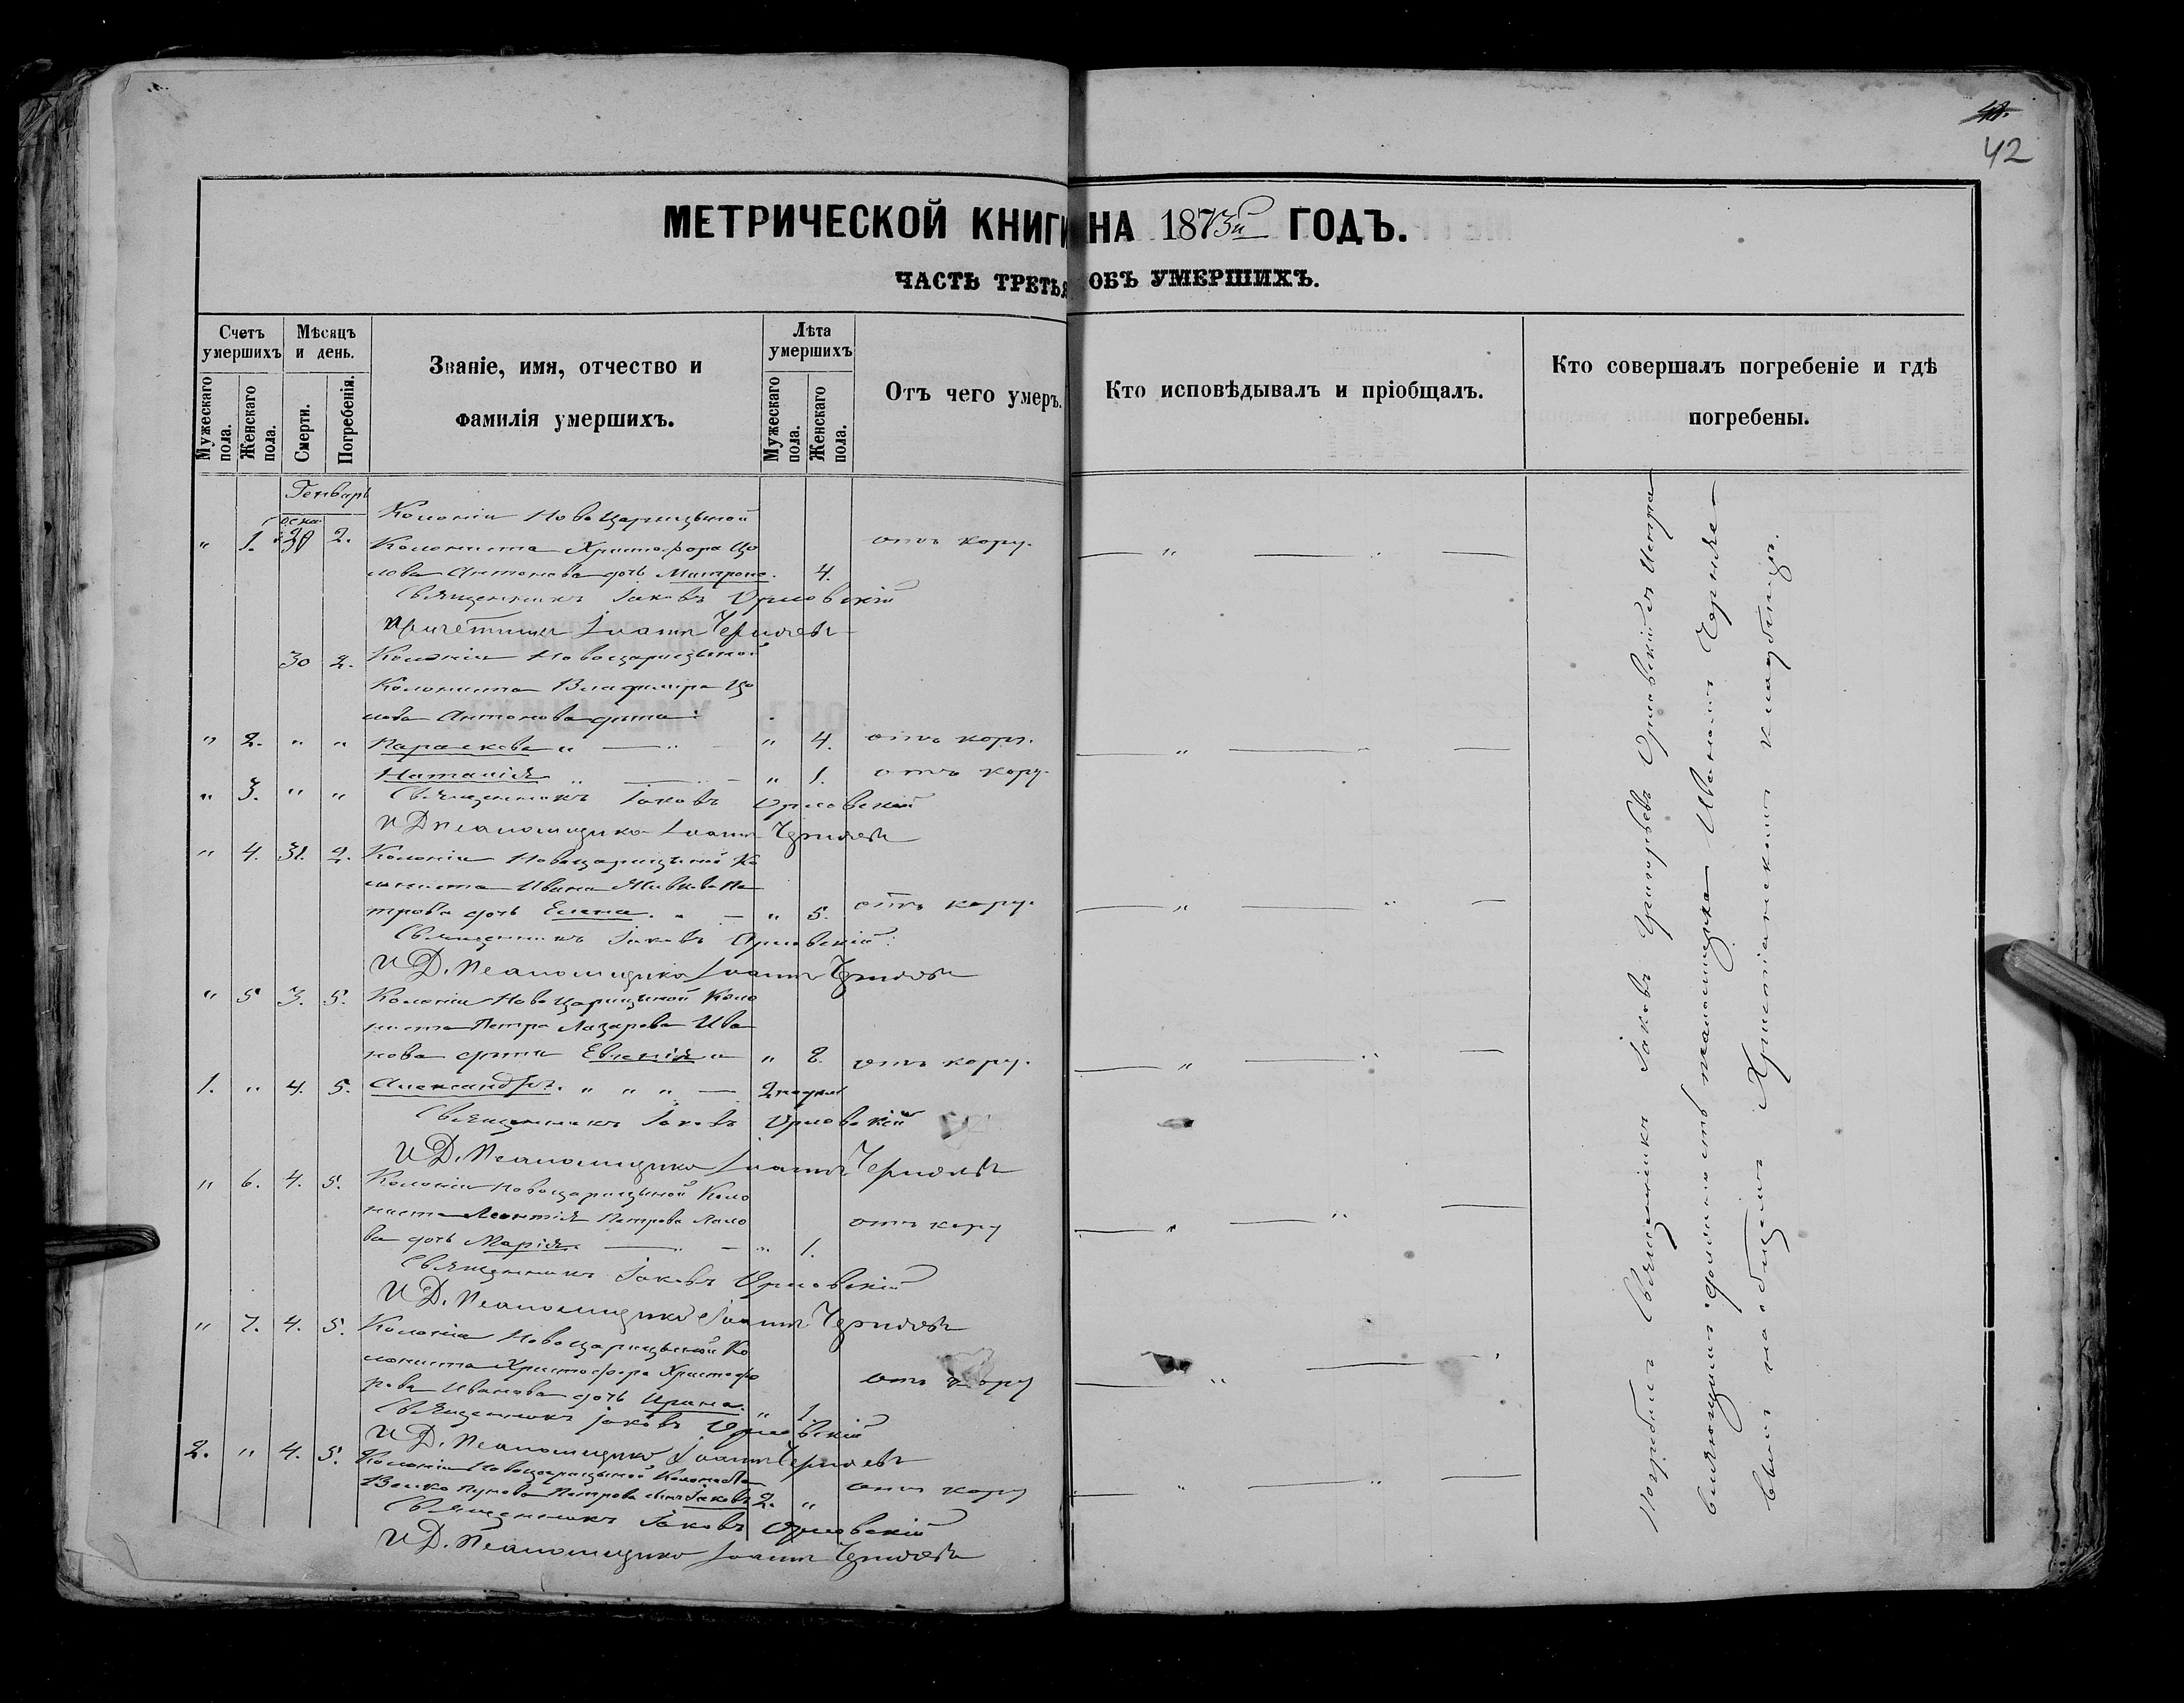 42
МЕТРИЧЕСКОЙ КНИГИ НА 1873й ГОДЪ.
ЧАСТЬ ТРЕТЬЯ ОБЪ УМЕРШИХЪ.
Счетъ умершихъ
Мужескаго пола.
Женскаго пола.
Мѣсяцъ и день.
Смерти.
Погребенія.
Званіе, имя, отчество и
фамилія умершихъ.
Лѣта умершихъ
Мужескаго пола.
Женскаго пола.
Отъ чего умеръ.
Кто исповѣдывалъ и пріобщалъ.
Кто совершалъ погребеніе и гдѣ
погребены.
Генварь
Колоніи Новоцарицыной
" 1. 30 2. Колониста Христофора
Антонова дочь Матрона. 4. отъ кору.
Священникъ Іаковъ Орловскій
Причетникъ Іоаннъ Черняевъ
30 2. Колоніи Новоцарицыной
Колониста Владимира
Антонова дѣти:
" 2. " " Параскева " — " — " 4. отъ кору.
" 3. " " Наталія " — " — " 1. отъ кору.
Священникъ Іаковъ Орловскій
И Д Псаломщика Іоаннъ Черняевъ
" 4. 31. 2. Колоніи Новоцарицыной Ко
лониста Ивана Пе
трова дочь Елена. " — " 5. отъ кору.
Священникъ Іаковъ Орловскій
И Д. Псаломщика Іоаннъ Черняевъ
" 5 3. 5. Колоніи Новоцарицыной Коло
ниста Петра Лазарева Ива
нова дѣти Евгенія " " 8. отъ кору.
1. " 4. 5. Александръ. " " " — 2 недѣли
Священникъ Іаковъ Орловскій
И Д. Псаломщика Іоаннъ Черняевъ
" 6. 4. 5. Колоніи Новоцарицыной Коло
ниста Леонтія Петрова
ва дочь Марія. — " — " 1. отъ кору
Священникъ Іаковъ Орловскій
И Д. Псаломщика Іоаннъ Черняевъ
" 7. 4. 5. Колоніи Новоцарицыной Ко
лониста Христофора Христофо
рова Иванова дочь Ирина. " 1. отъ кору
Священникъ Іаковъ Орловскій
И Д. Псаломщика Іоаннъ Черняевъ
2. " 4. 5. Колоніи Новоцарицыной Колониста
Петрова сынъ Іаковъ 2. " отъ кору
Священникъ Іаковъ Орловскій
И Д. Псаломщика Іоаннъ Черняевъ
Погребалъ Священникъ Іаковъ Григорьевъ Орловскій съ Исправ
вляющимъ должность псаломщика Иваномъ Черняе-
вымъ на общемъ Христіанскомъ кладбищѣ.